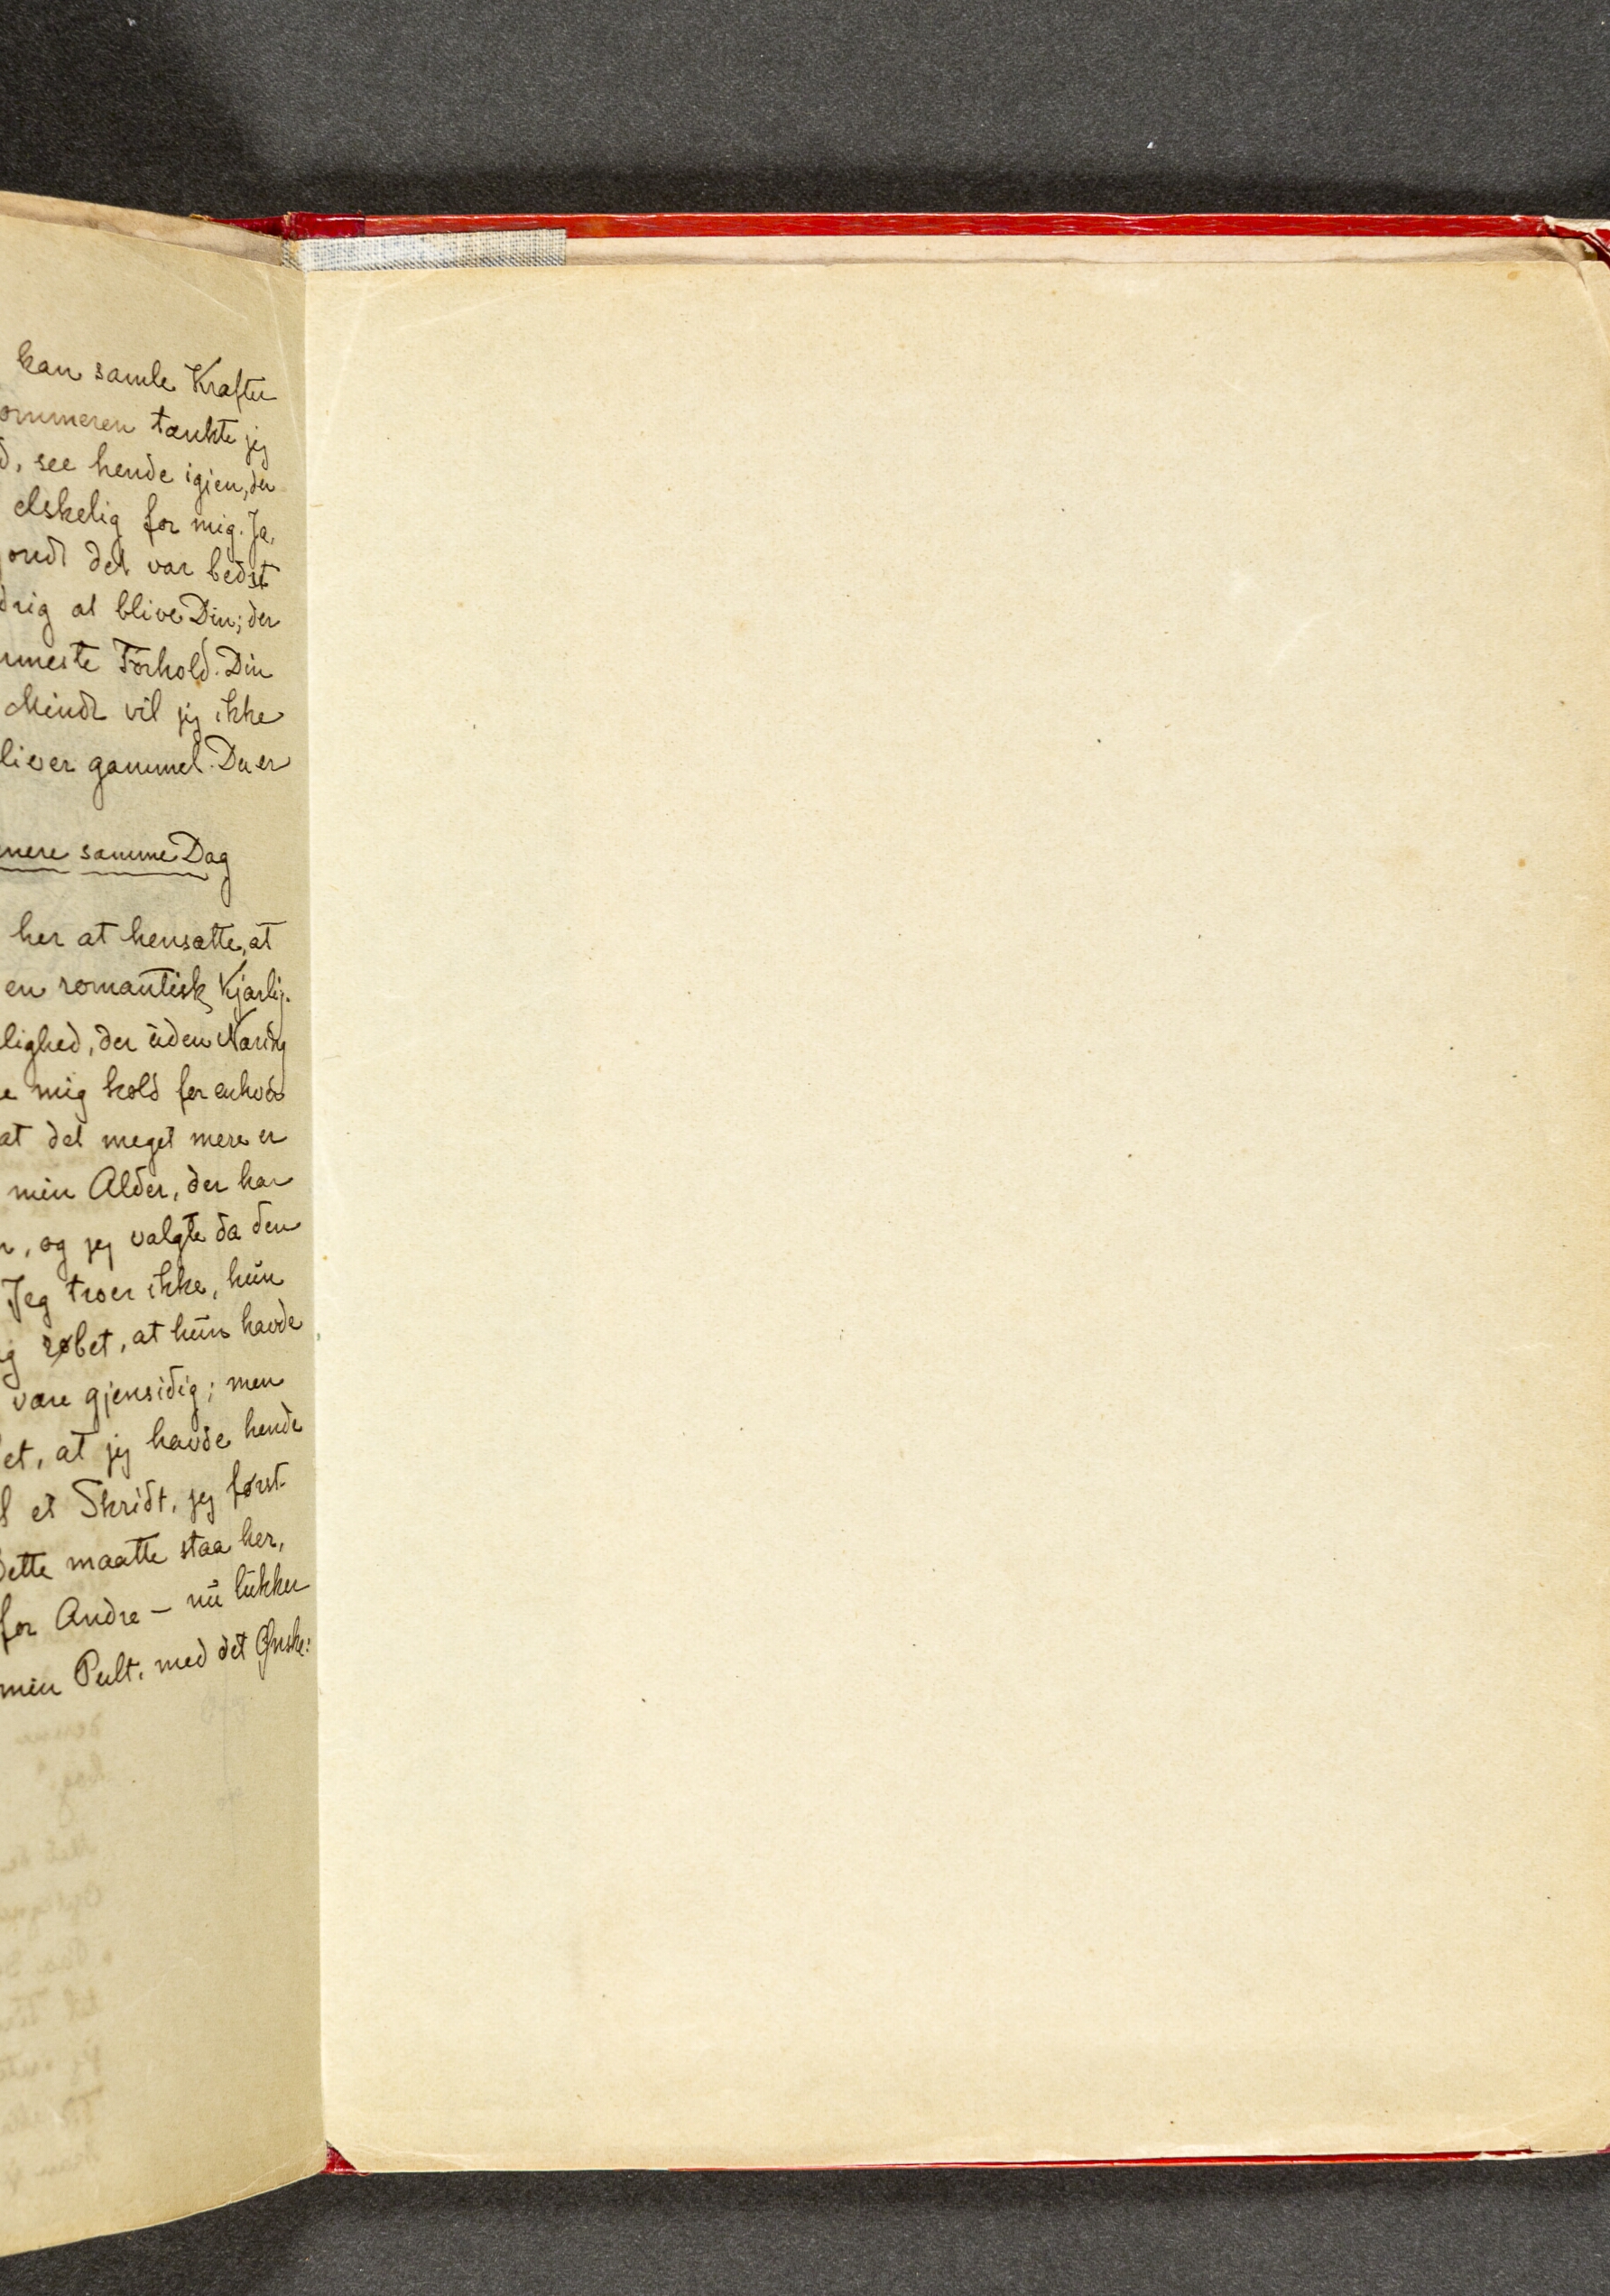 kan samle Kræfter
ommeren tænkte jeg
d, see hende igjen, der
elskelig for mig. Ja,
ondt det var bedst
drig at blive Din; der
mmeste Forhold. Din
Minde vil jeg ikke
liver gammel. Du er
nere samme Dag
her at hensætte, at
en romantisk Kjærlig-
lighed, der uden Næring
e mig kold for enhver
at det meget mere er
min Alder, der har
n, og jeg valgte da den
Jeg troer ikke, hun
ig røbet, at hun havde
være gjensidig; men
et, at jeg havde hende
l et Skridt, jeg først
Dette maatte staa her,
for Andre – nu lukker
min Pult, med det Ønske: